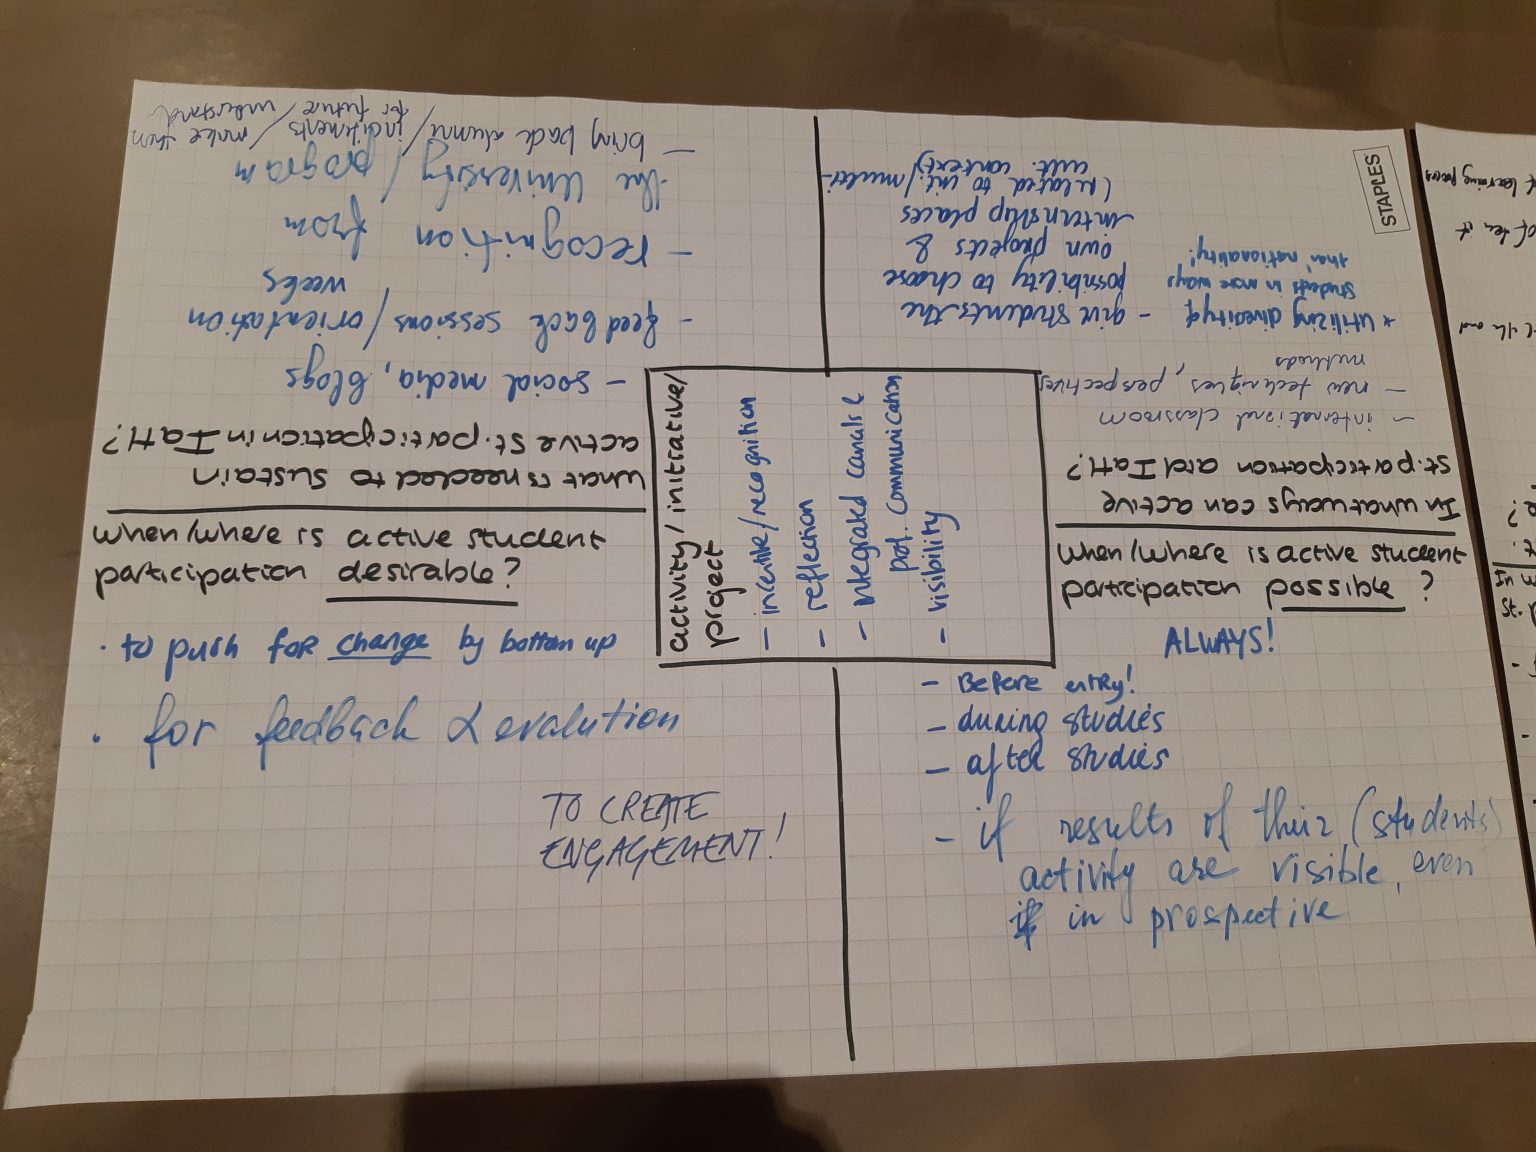 when/where is active student
participation desirable?
· to push for change by bottom up
· for feedback & evalution
TO CREATE
ENGAGEMENT!
when/where is active student
participation possible?
ALWAYS!
- Before entry!
- during studies
- after studies
- if results of their (students)
activity are visible, even
if in prospective
activity/initiative/
project
- incentive/recognition
- reflection
- integrated canals &
prof. communication
- visibility
In what ways can active
st. participation and IatH?
- international classroom
- new techniques, perspectives
methods
* Utilizing diversity of
students in more ways
than 'nationality'!
- give students the
possibility to choose
own projects &
internship places
(related to int./multi-
cult. context)
what is needed to sustain
active st. participation in IatH?
- social media, blogs
- feedback sessions/orientation
weeks
- recognition from
the University/program
- bring back alumni/incitements/make them
for future/understand
STAPLES
of learning process